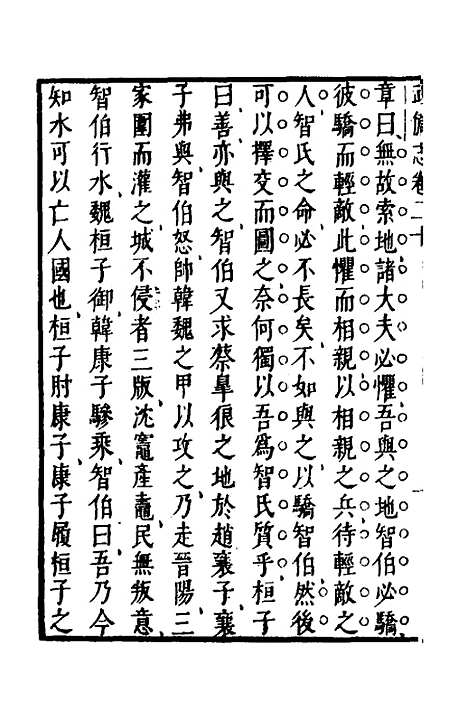 武備志卷二十
章曰無故索地諸大夫必懼吾與之地智伯必驕
彼驕而輕敵此懼而相親以相親之兵待輕敵之
人智氏之命必不長矣不如與之以驕智伯然後
可以擇交而圖之奈何獨以吾爲智氏質乎桓子
曰善亦與之智伯又求蔡臯狼之地於趙襄子襄
子弗與智伯怒帥韓魏之甲以攻之乃走晉陽三
家圍而灌之城不侵者三版沈竈產鼃民無叛意
智伯行水魏桓子御韓康子驂乘智伯曰吾乃今
知水可以亡人國也桓子肘康子康子履桓子之